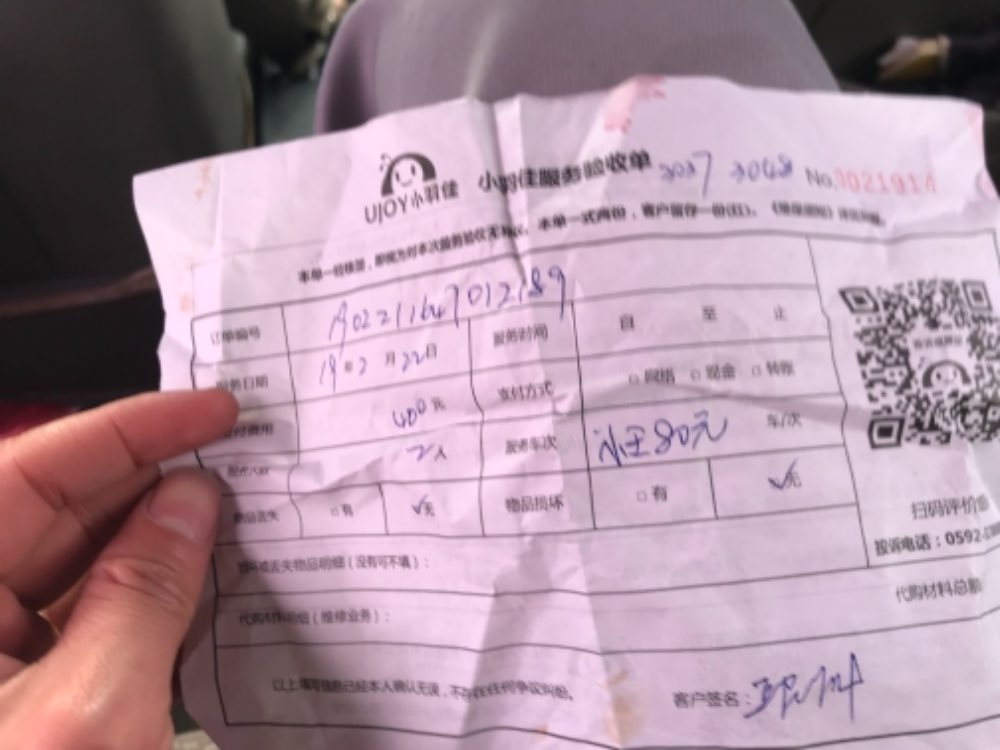 UJOY小羽佳 小羽佳服务验收单 3037 3048 No.0021914
本单一经签签,即视为对本次服务验收无异议。本单一式两份,客户留存一份(红)。
订单编号 A02211647012189 服务时间 自 至 止
服务日期 19年2月22日 支付方式 □网络 □现金 □转账
支付费用 400元 服务车次 80元 车/次
服务人数 2人
物品丢失 □有 ✓无 物品损坏 □有 ✓无
扫码评价
投诉电话:0592-
损坏或丢失物品明细(没有可不填):
代购材料明细(维修业务): 代购材料总额
以上填写信息已经本人确认无误,不存在任何争议纠纷。 客户签名: